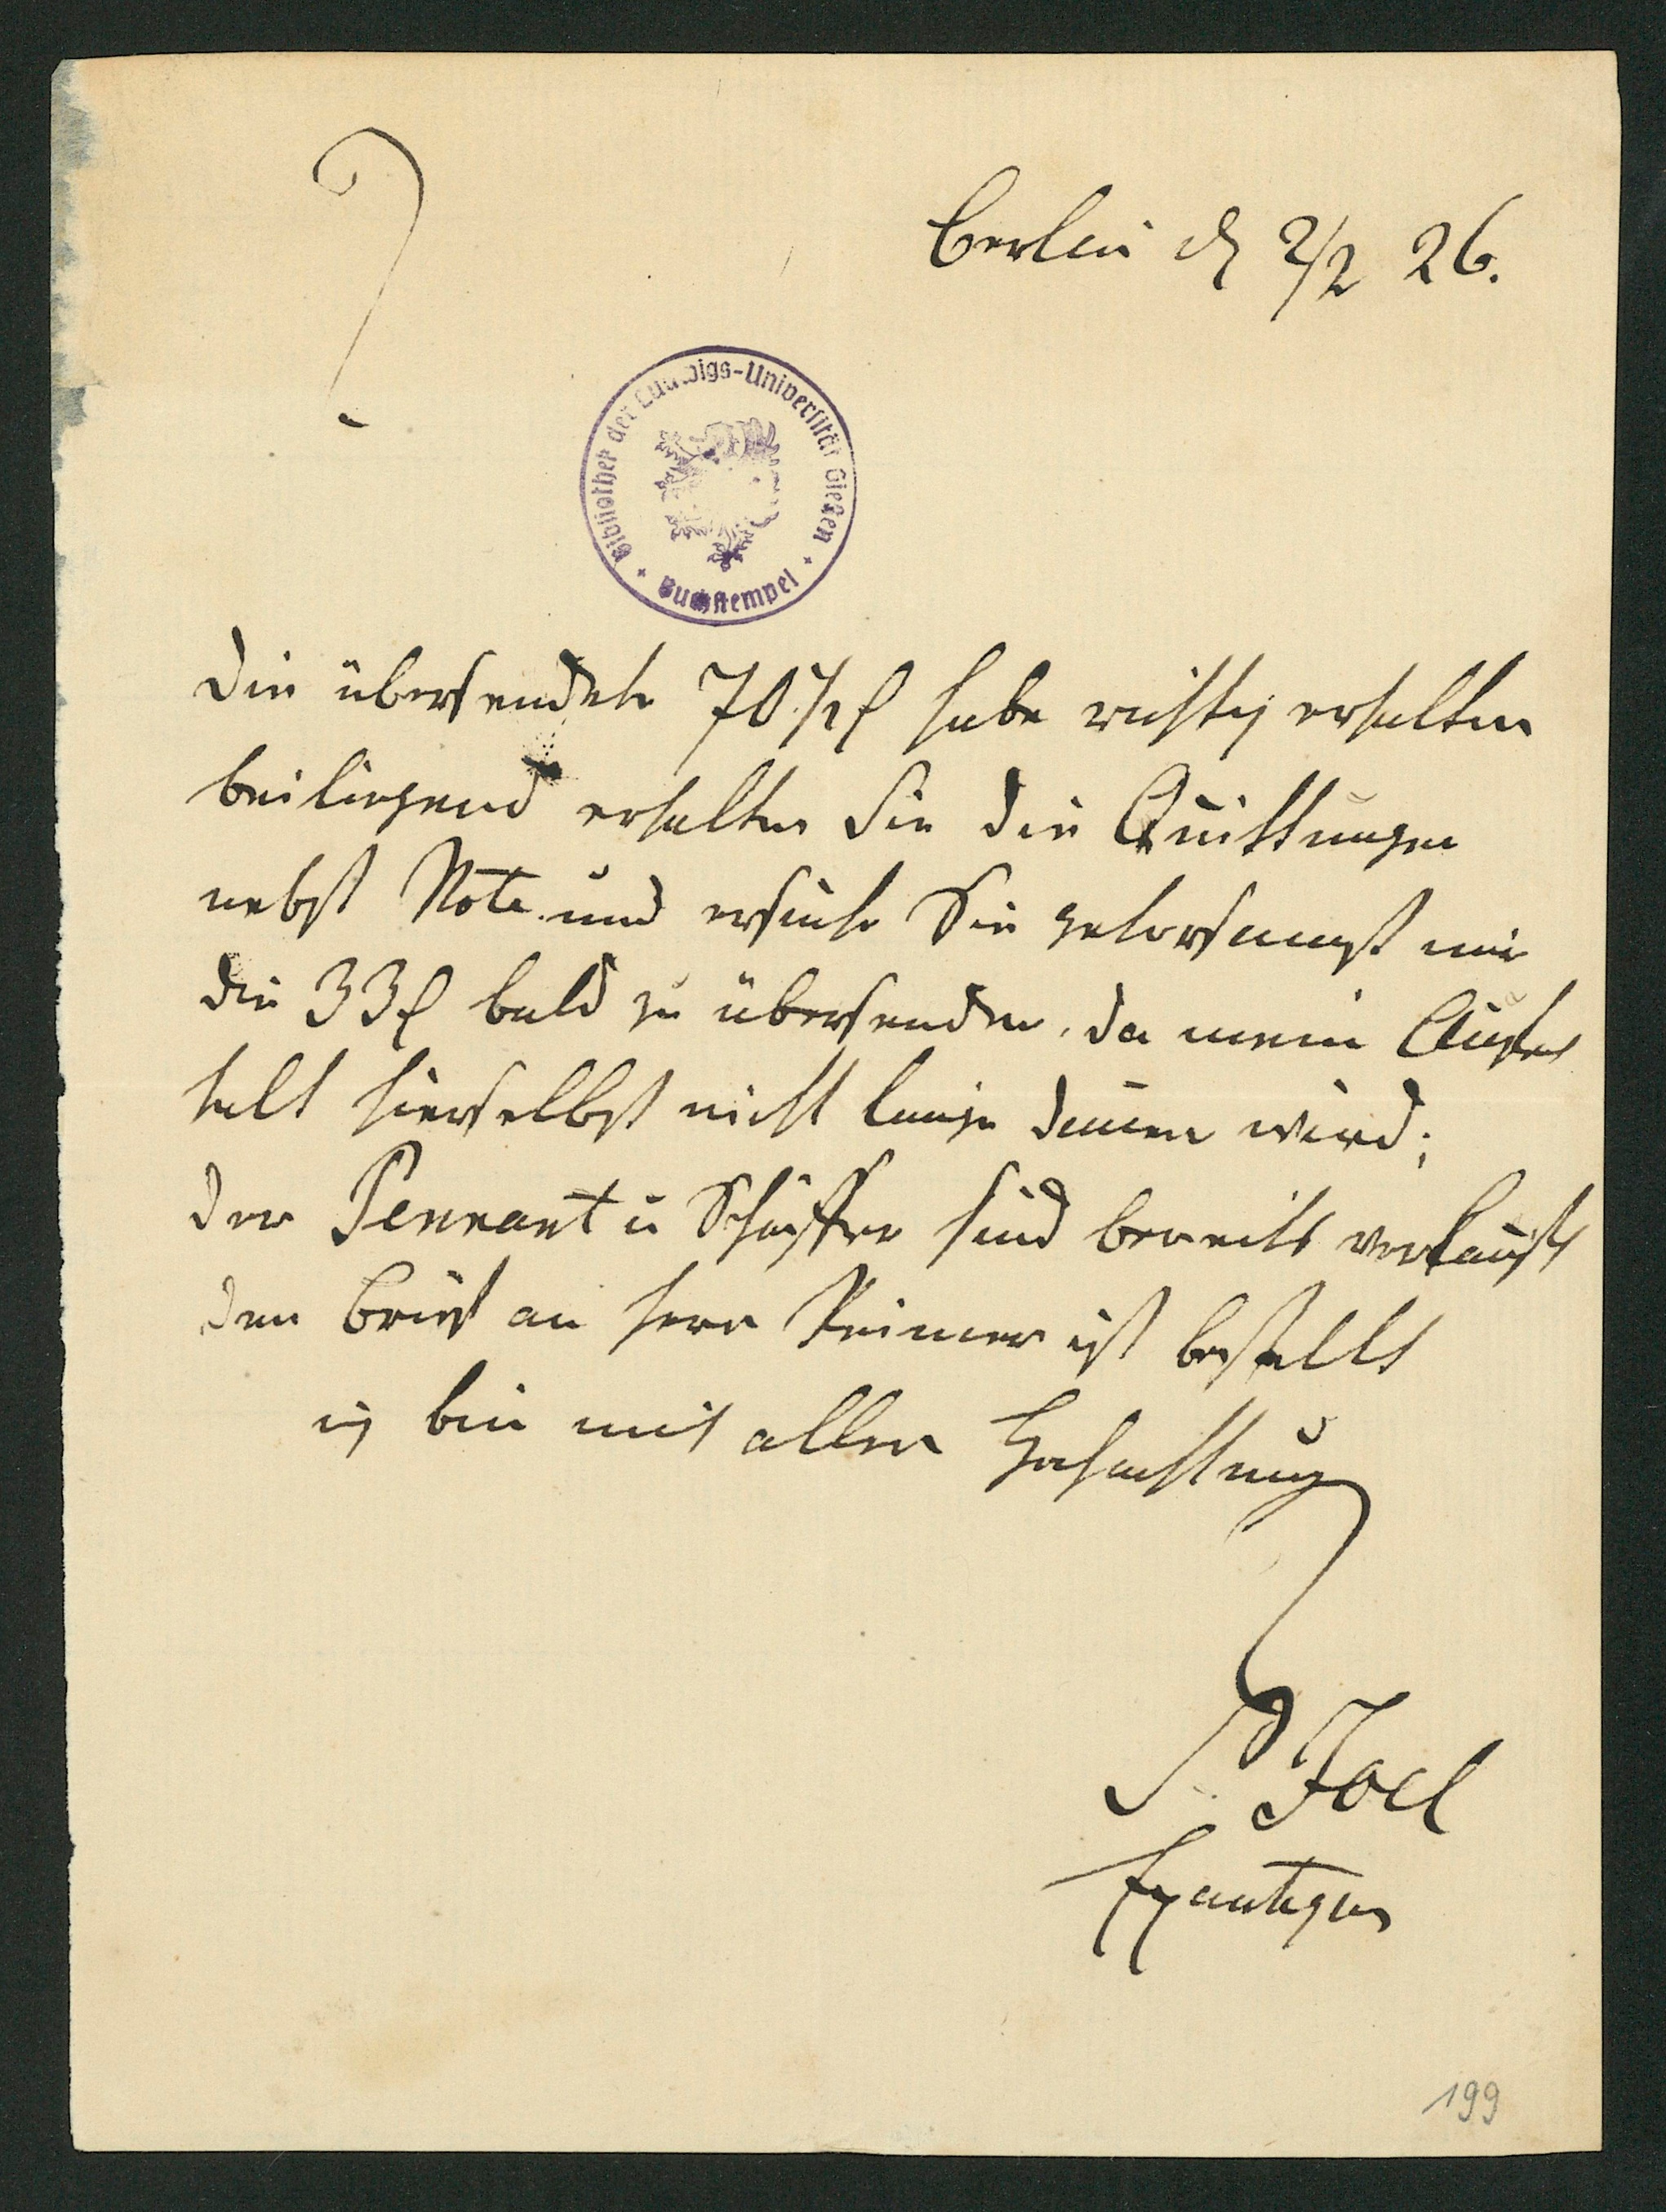 Berlin d 2/2 26.
Bibliothek der Ludwigs-Universität Gießen
Buchstempel
die übersendete 70 habe richtig erhalten
beiliegend erhalten Sie die Quittungen
nebst Note und ersuche Sie gehorsamst mir
die 33 bald zu übersenden, da mein Aufent
halt hierselbst nicht lange dauern wird;
der Pennant u Schäffer sind bereits verkauft
den Brief an Herr Reimer ist bestellt
ich bin mit aller Hochachtung
Joel
199